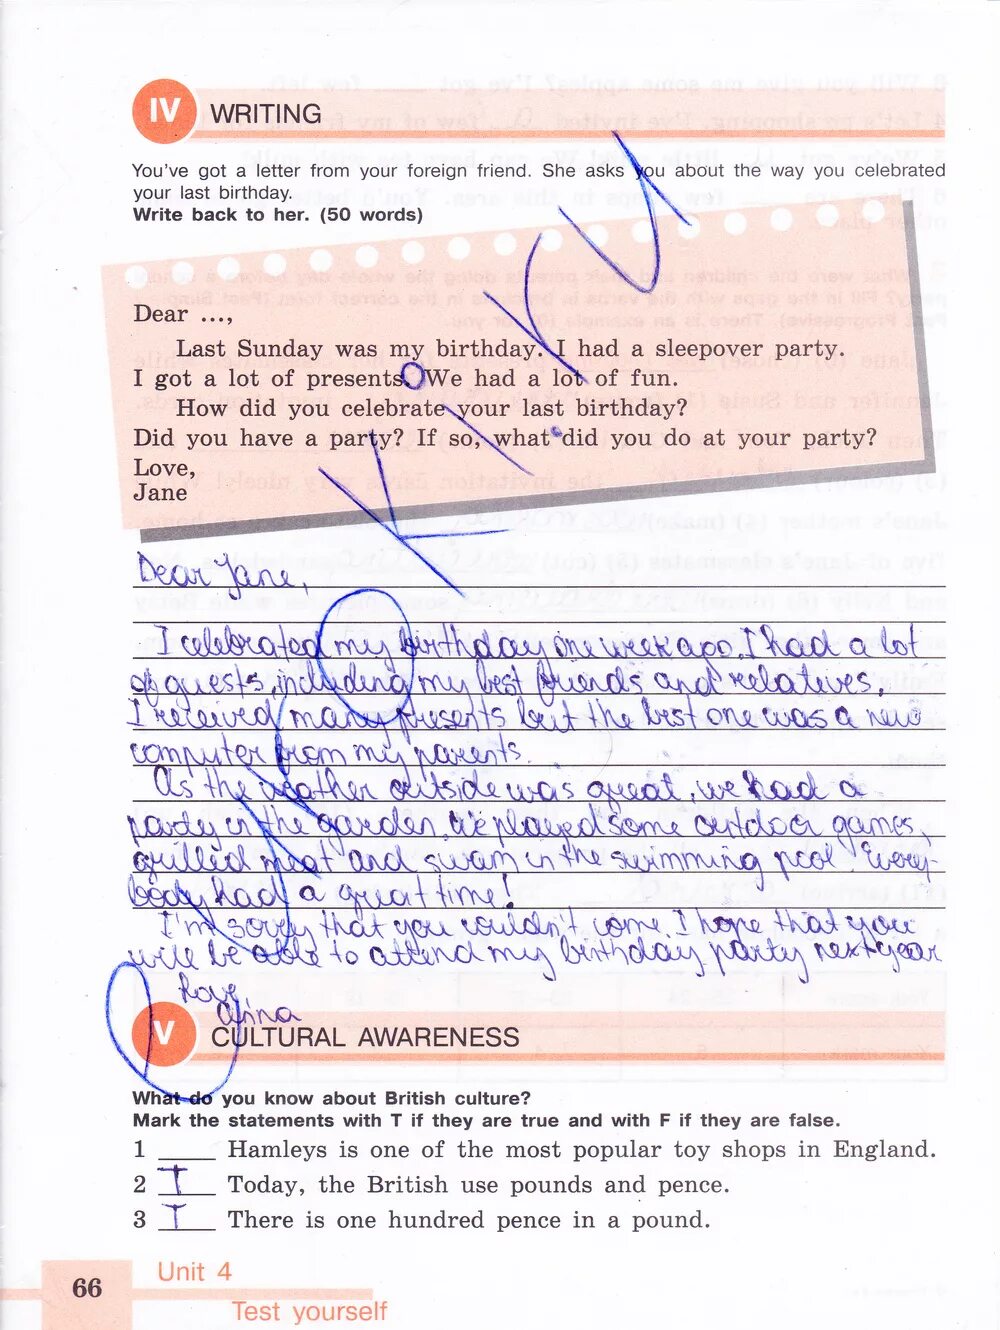 IV WRITING
You've got a letter from your foreign friend. She asks you about the way you celebrated
your last birthday.
Write back to her. (50 words)
Dear ...,
Last Sunday was my birthday. I had a sleepover party.
I got a lot of presents. We had a lot of fun.
How did you celebrate your last birthday?
Did you have a party? If so, what did you do at your party?
Love,
Jane
Dear Jane,
I celebrated my birthday one week ago. I had a lot
of guests, including my best friends and relatives.
I received many presents but the best one was a new
computer from my parents.
As the weather outside was great, we had a
party in the garden. We played some outdoor games,
grilled meat and swam in the swimming pool. Every-
body had a great time!
I'm sorry that you couldn't come. I hope that you
will be able to attend my birthday party next year
Love,
Anna
V CULTURAL AWARENESS
What do you know about British culture?
Mark the statements with T if they are true and with F if they are false.
1 ____ Hamleys is one of the most popular toy shops in England.
2 T Today, the British use pounds and pence.
3 T There is one hundred pence in a pound.
66 Unit 4
Test yourself